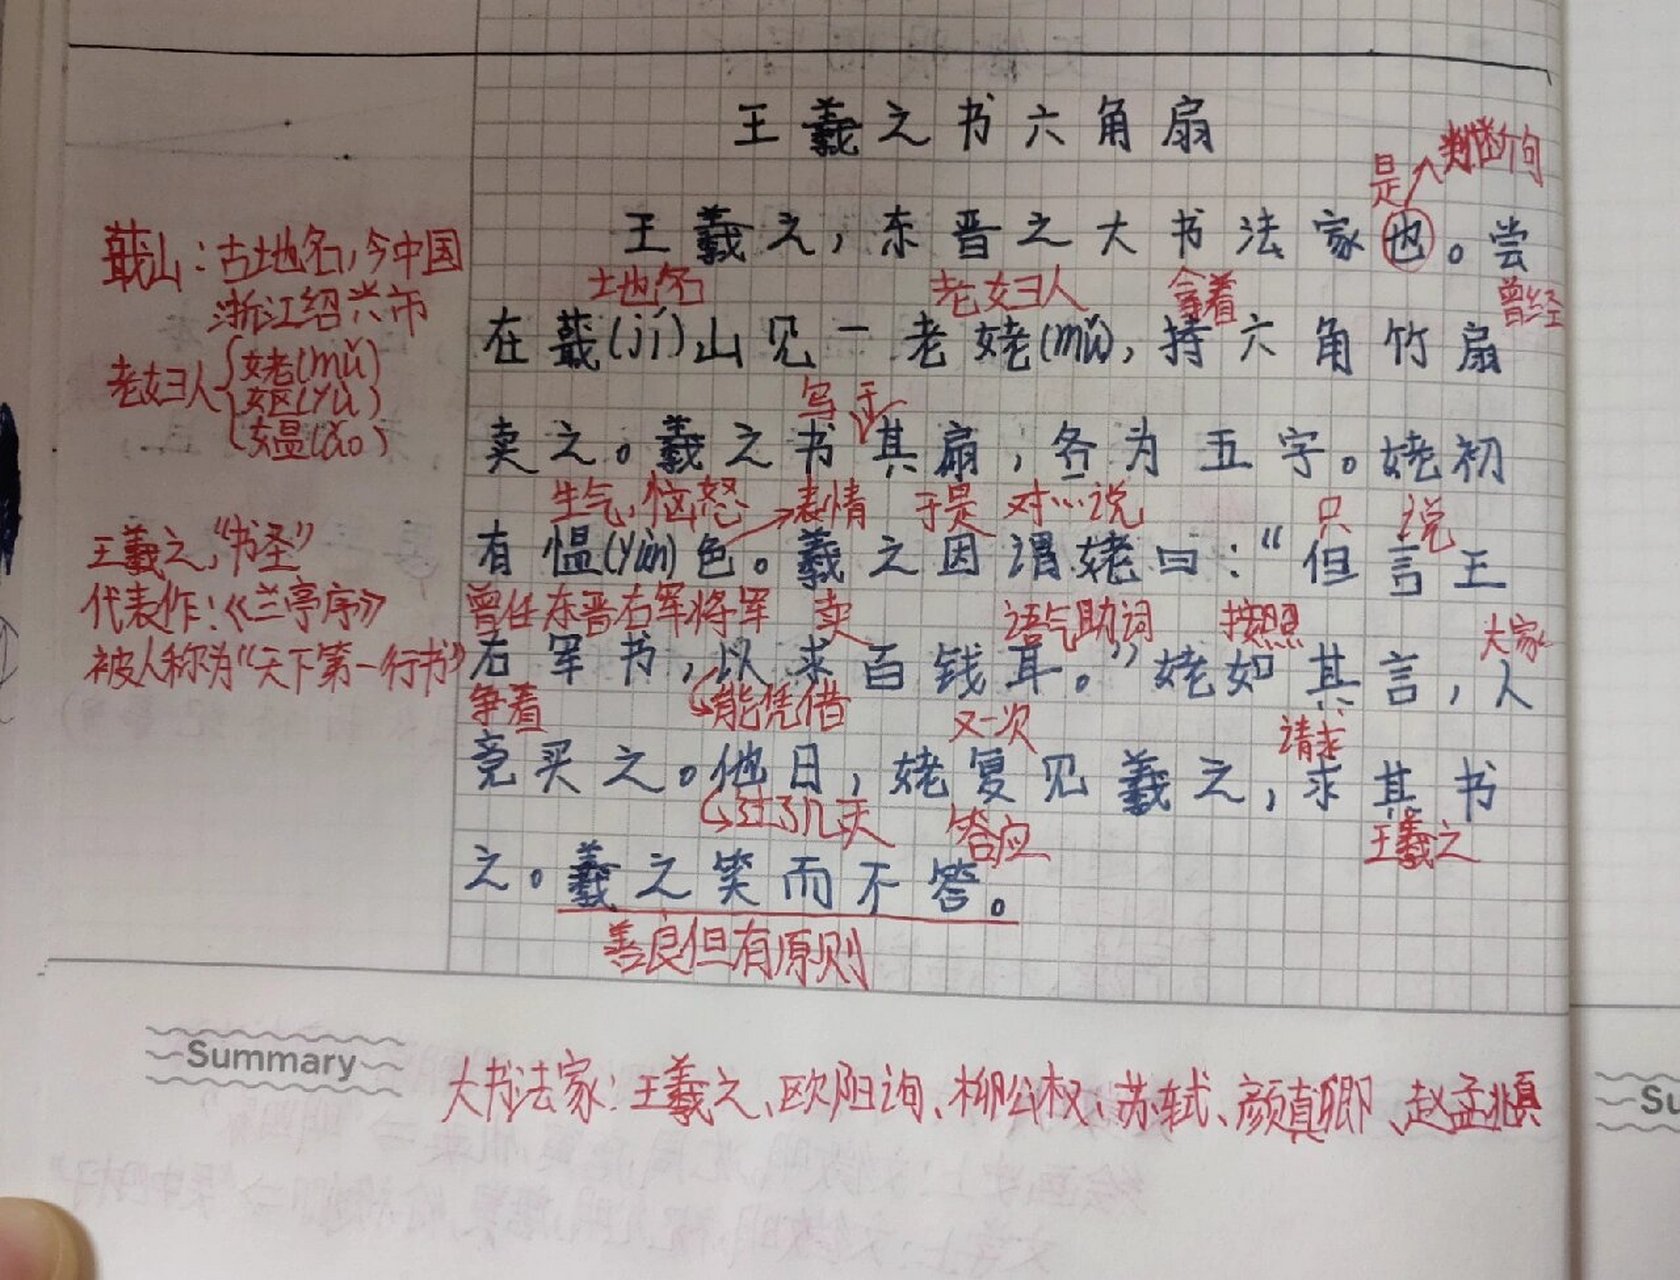 王羲之书六角扇
是 判断句
王羲之，东晋之大书法家也。尝
蕺山：古地名，今中国
浙江绍兴市
土地名 老妇人 拿着 曾经
在蕺(jí)山见一老姥(mǔ)，持六角竹扇
老妇人 姥(mǔ)
妪(yù)
媪(ǎo)
写 于
卖之。羲之书其扇，各为五字。姥初
生气，恼怒 表情 于是 对…说 只 说
有愠(yùn)色。羲之因谓姥曰：“但言王
王羲之，“书圣”
代表作：《兰亭序》
被人称为“天下第一行书”
曾任东晋右军将军 卖 语气助词 按照 大家
右军书，以求百钱耳。”姥如其言，人
争着 能凭借 又一次 请求
竞买之。他日，姥复见羲之，求其书
过了几天 答应 王羲之
之。羲之笑而不答。
善良但有原则
Summary
大书法家：王羲之、欧阳询、柳公权、苏轼、颜真卿、赵孟頫
Su